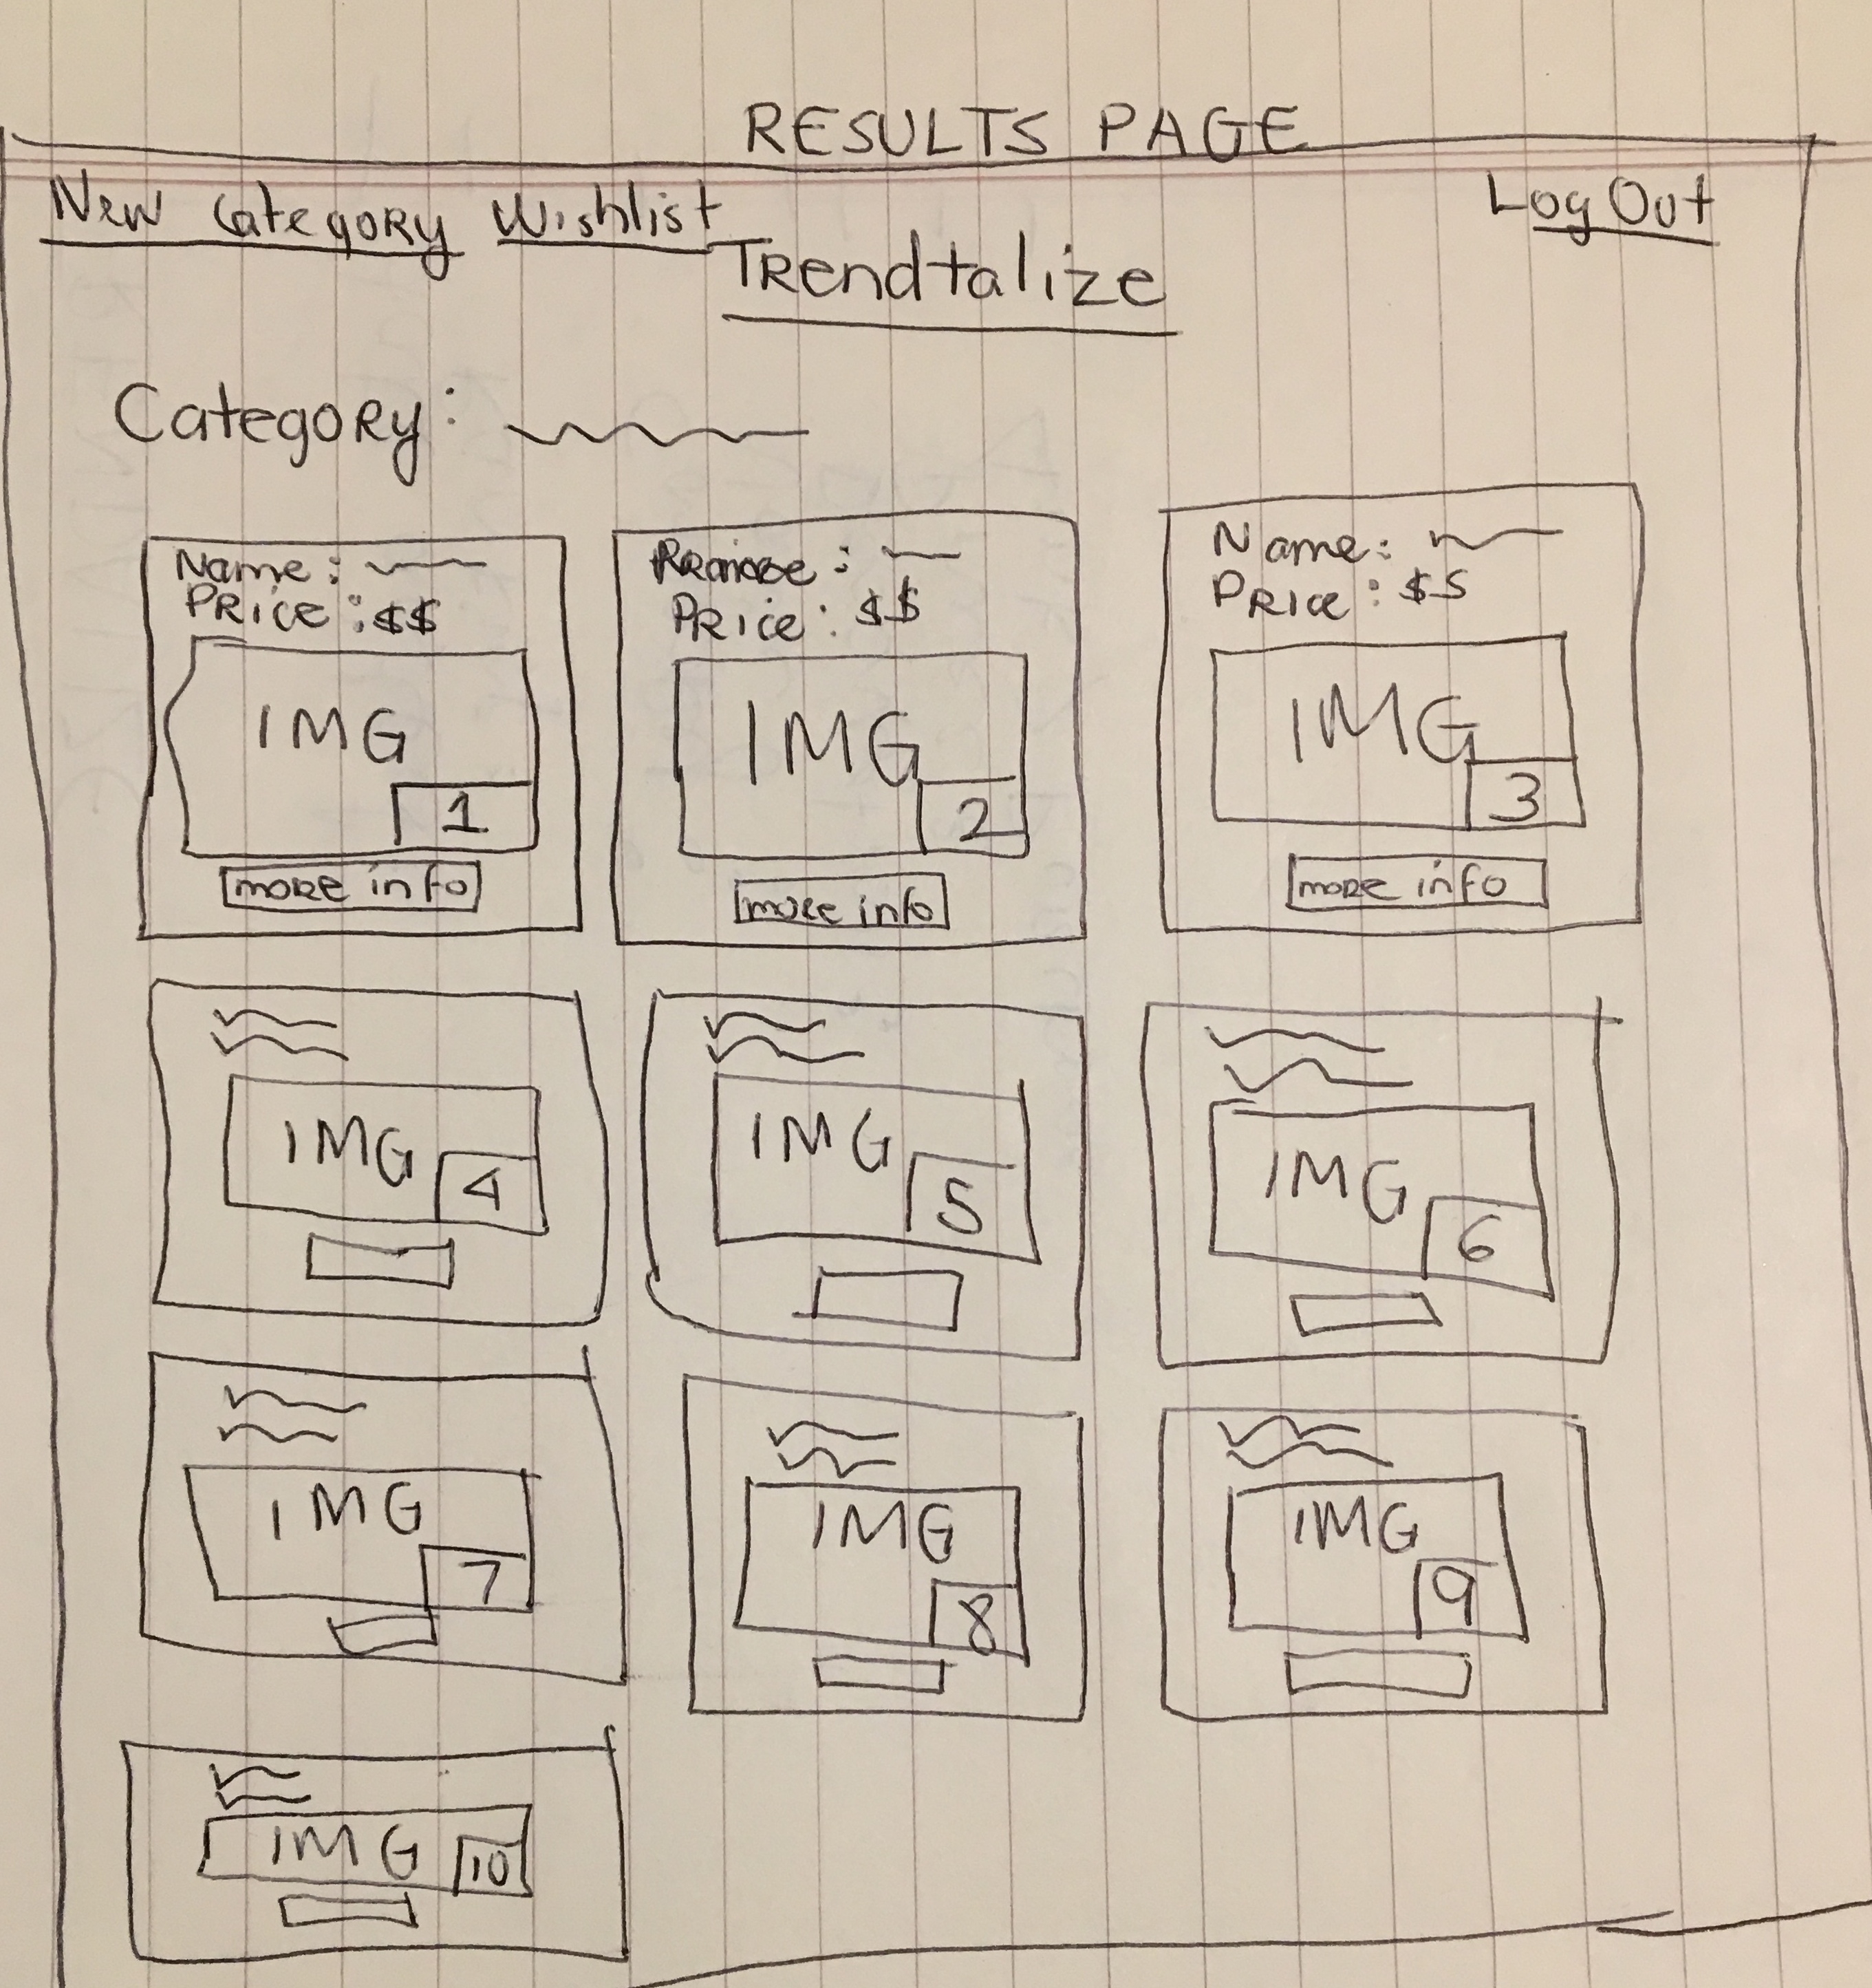 RESULTS PAGE
New Category Wishlist Log Out
Trendtalize
Category:
Name:
Price: $$
IMG
1
more info
:
Price: $$
IMG
2
more info
Name:
Price: $$
IMG
3
more info
IMG
4
IMG
5
IMG
6
IMG
7
IMG
8
IMG
9
IMG
10